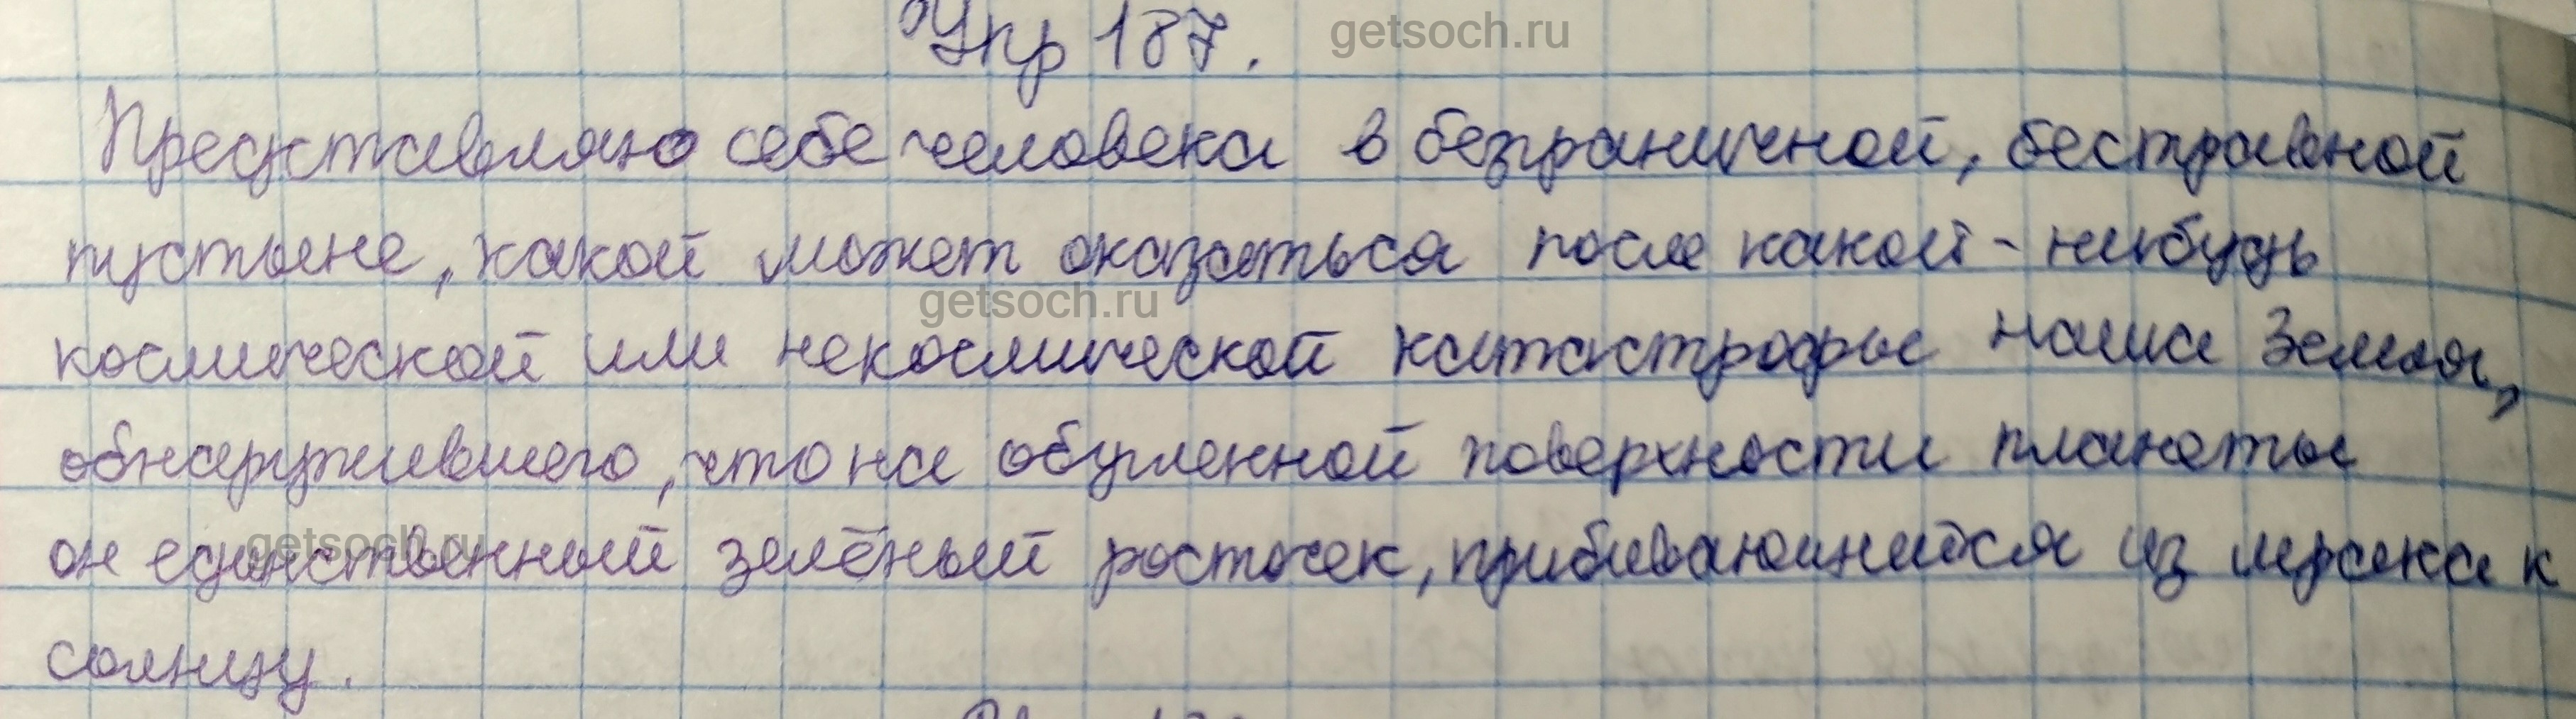 Упр 187.
getsoch.ru
Представляю себе человека в безграничной, бестравной
пустыне, какой может оказаться после какой-нибудь
getsoch.ru
космической или некосмической катастрофы наша Земля,
обнаружившего, что на обугленной поверхности планеты
getsoch.ru
он единственный зелёный росточек, прибивающийся из мрака к
солнцу.